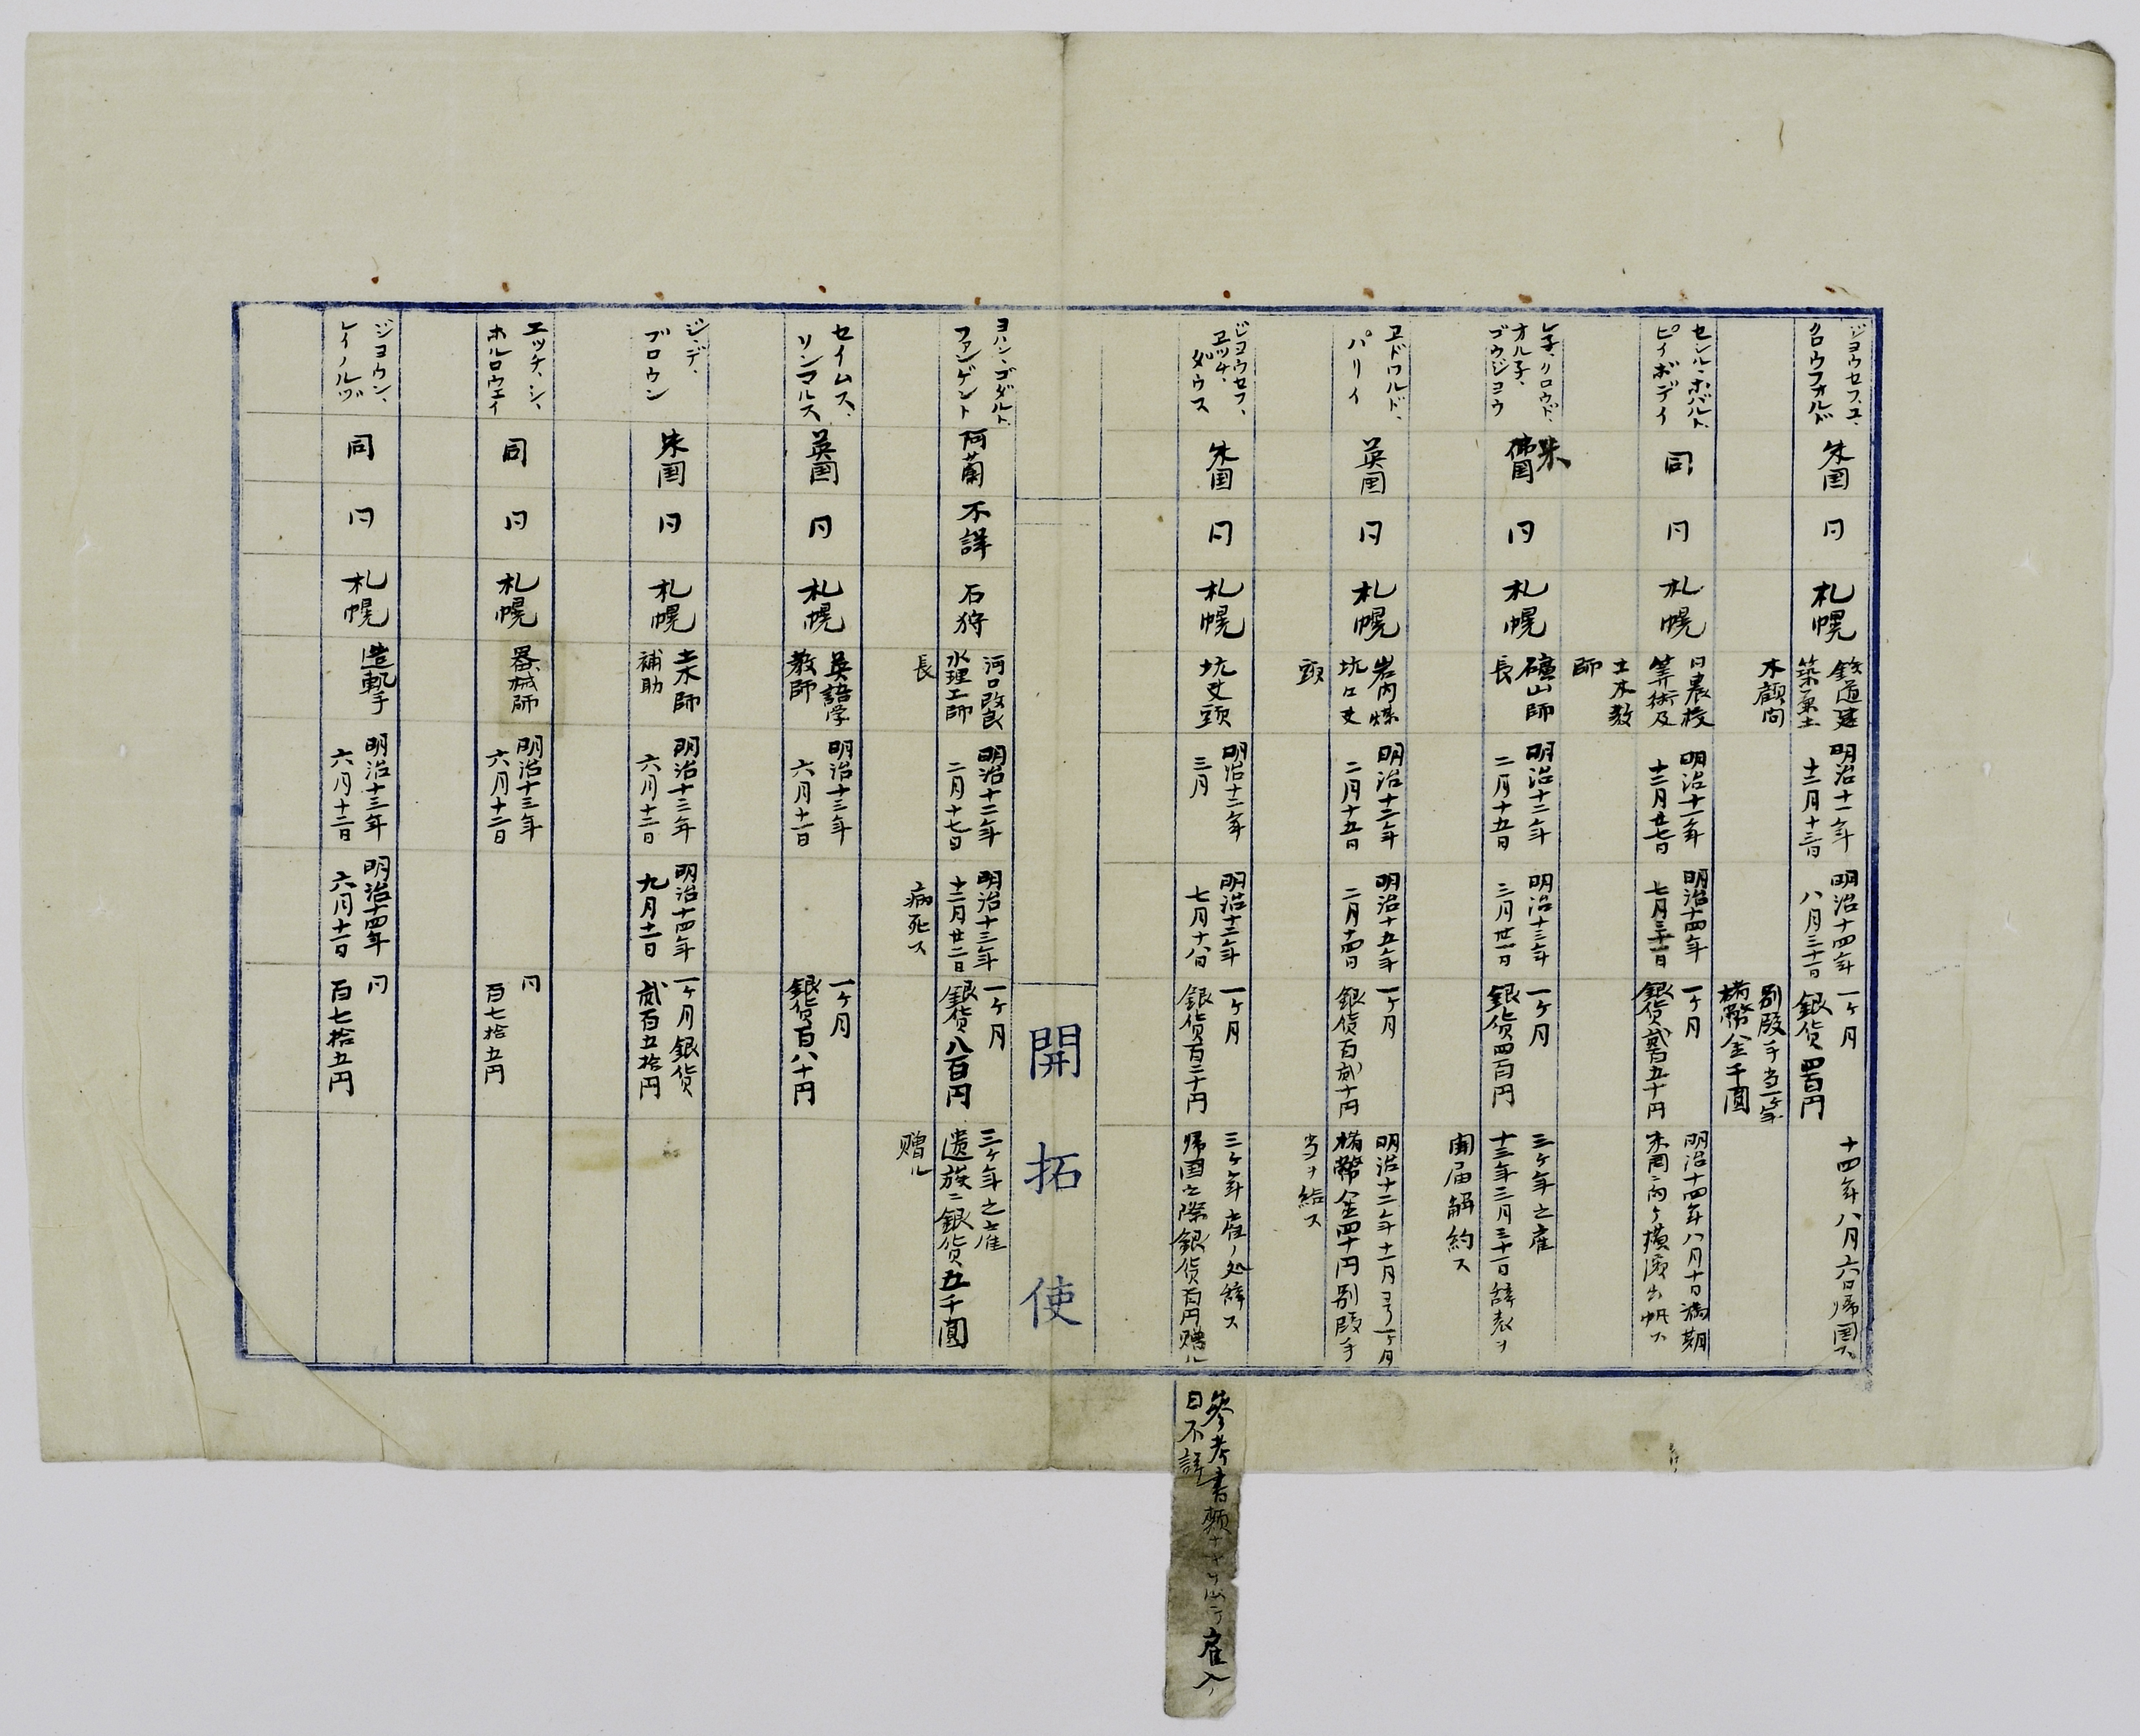 ジヨウセフ、ユ、
クロウフオルド
米国
同
札幌
鉄道建
築兼土
木顧問
明治十一年
十二月十三日
明治十四年
八月三十一日
一ケ月
銀貨四百円
別段手当一ケ年
楮幣金千圓
十四年八月六日帰国ス
セシル、ホバルト、
ピイボデイ
同
同
札幌
同農校
算術及
土木教
師
明治十一年
十二月廿七日
明治十四年
七月三十一日
一ケ月
銀貨貳百五十円
明治十四年八月十日満期
本国ニ向ケ横濱出帆ス
レ子、クロウド、
オル子、
ゴウジヨウ
米
佛国
同
札幌
礦山師
長
明治十二年
二月十五日
明治十三年
三月廿一日
一ケ月
銀貨四百円
三ケ年之雇
十三年三月三十一日辞表ヲ
聞届解約ス
エドワルド、
パリイ
英国
同
札幌
岩内煤
坑口丈
頭
明治十二年
二月十五日
明治十五年
二月十四日
一ケ月
銀貨百貳十円
明治十二年十一月ヨリ一ケ月
楮幣金四十円別段手
当ヲ給ス
ジヨウセフ、
エツチ、
ダウス
米国
同
札幌
坑丈頭
明治十二年
三月
明治十二年
七月十八日
一ケ月
銀貨百二十円
三ケ年雇ノ処辞ス
帰国之際銀貨百円贈ル
参考書類
雇入
日不詳
開拓使
ヨハン、ゴダルト、
フアンゲント
阿蘭
不詳
石狩
河口改良
水理工師
長
明治十二年
二月十七日
明治十三年
十二月廿二日
病死ス
一ケ月
銀貨八百円
三ケ年之雇
遺族ニ銀貨五千圓
贈ル
セイムス、
リンマルス
英国
同
札幌
英語学
教師
明治十三年
六月十一日
一ケ月
銀貨百八十円
ジ、デ、
ブロウン
米国
同
札幌
土木師
補助
明治十三年
六月十二日
明治十四年
九月十一日
一ケ月銀貨
貳百五拾円
エツチ、シ、
ホルロウエイ
同
同
札幌
器械師
明治十三年
六月十二日
同
百七拾五円
ジヨウン、
レイノルヅ
同
同
札幌
造軌手
明治十三年
六月十二日
明治十四年
六月十一日
同
百七拾五円